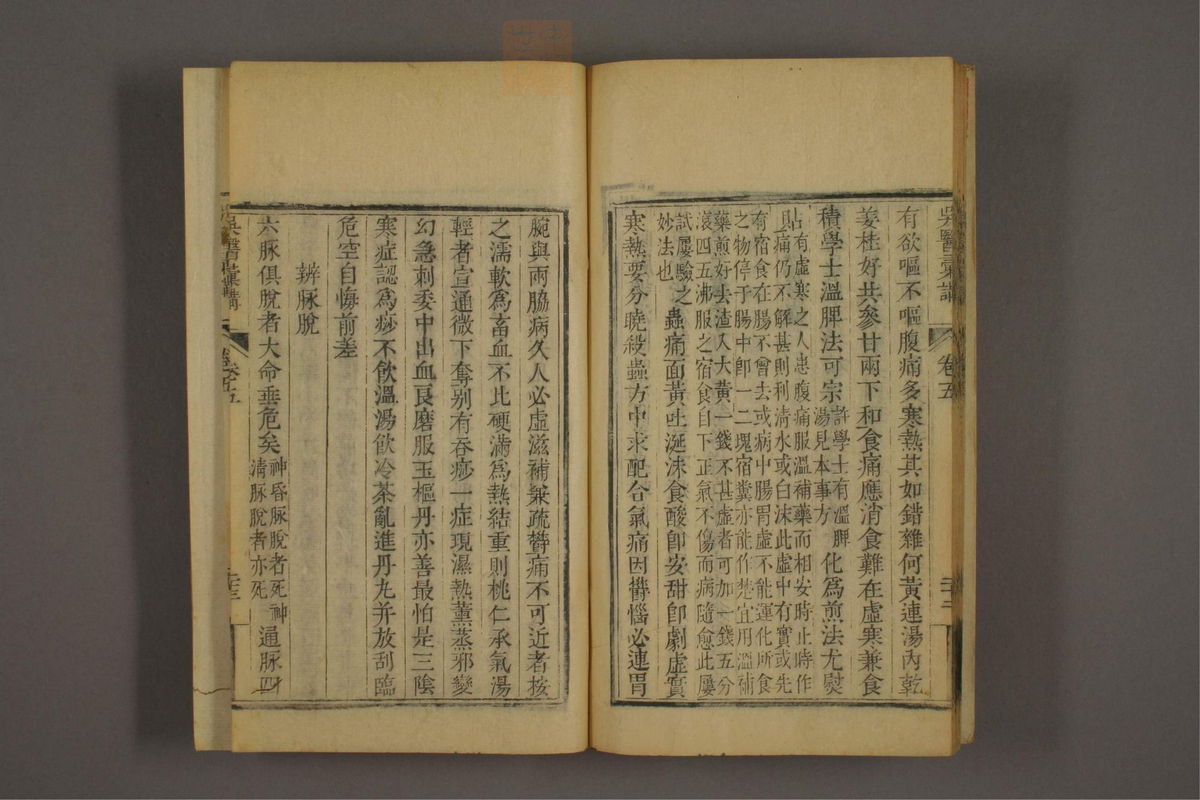 吳醫彙講
卷五
有欲嘔不嘔腹痛多寒熱其如錯雜何黃連湯內乾
姜桂好共參甘兩下和食痛應消食難在虛寒兼食
積學士溫脾法可宗許學士有溫脾湯見本事方化為煎法尤熨
貼有虛寒之人患腹痛服溫補藥而相安時止時作
則痛仍不解甚則利清水或白沫此虛中有實或先
有宿食在腸不曾去或病中腸胃虛不能運化所食
之物停于腸中卽一二塊宿糞亦能作楚宜用溫補
藥煎好去渣入大黃一錢不甚虛者可加一錢五分
滾四五沸服之宿食自下正氣不傷而病隨愈此屢
試屢驗之
妙法也
蟲痛面黃吐涎沫食酸卽安甜卽劇虛實
寒熱要分曉殺蟲方中求配合氣痛因鬱惱必連胃
脘與兩脇病久人必虛滋補兼疏鬱痛不可近者按
之濡軟為畜血不比硬滿為熱結重則桃仁承氣湯
輕者宣通微下奪別有吞痧一症現濕熱薰蒸邪變
幻急刺委中出血艮磨服玉樞丹亦善最怕是三陰
寒症認為痧不飲溫湯飲冷茶亂進丹丸并放刮臨
危空自悔前差
辨脉脫
六脉俱脫者大命垂危矣神昏脉脫者死神清脉脫者亦死通脉四
吳醫彙講
卷五